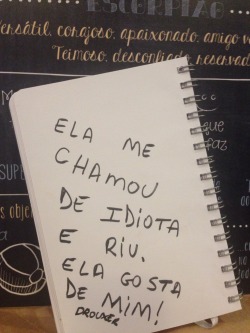 ESCORPIÃO
Versátil, corajoso, apaixonado, amigo v
Teimoso, desconfiado, reservad
ELA ME
CHAMOU
DE IDIOTA
E RIU.
ELA GOSTA
DE MIM!
que
faz
SUPE
s obje